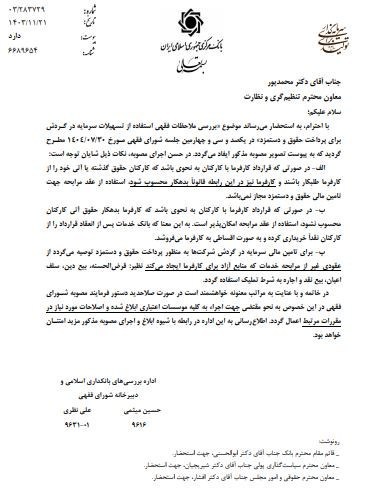 سرمایه‌گذاری
برای تولید
بانک مرکزی جمهوری اسلامی ایران
بسمه تعالی
شماره: ۰۳/۲۸۳۷۲۹
تاریخ: ۱۴۰۳/۱۱/۲۱
پیوست: دارد
شناسه: ۶۶۸۹۶۵۴
جناب آقای دکتر محمدپور
معاون محترم تنظیم‌گری و نظارت
سلام علیکم؛
با احترام، به استحضار می‌رساند موضوع «بررسی ملاحظات فقهی استفاده از تسهیلات سرمایه در گردش
برای پرداخت حقوق و دستمزد» در یکصد و سی و چهارمین جلسه شورای فقهی مورخ ۱۴۰۳/۰۷/۳۰ مطرح
گردید که به پیوست تصویر مصوبه مذکور ایفاد می‌گردد. در حسن اجرای مصوبه، نکات ذیل شایان توجه است:
الف- در صورتی که قرارداد کارفرما با کارکنان به نحوی باشد که کارکنان حقوق گذشته یا آتی خود را از
کارفرما طلبکار باشند و کارفرما نیز در این رابطه قانوناً بدهکار محسوب شود، استفاده از عقد مرابحه جهت
تامین مالی حقوق و دستمزد مجاز نمی‌باشد.
ب- در صورتی که قرارداد کارفرما با کارکنان به نحوی باشد که کارفرما بدهکار حقوق آتی کارکنان
محسوب نشود، استفاده از عقد مرابحه امکان‌پذیر است. به این معنا که بانک خدمات پس از انعقاد قرارداد را از
کارکنان نقداً خریداری کرده و به صورت اقساطی به کارفرما می‌فروشد.
پ- برای تامین مالی سرمایه در گردش شرکت‌ها به منظور پرداخت حقوق و دستمزد توصیه می‌گردد از
عقودی غیر از مرابحه خدمات که منابع آزاد برای کارفرما ایجاد می‌کند نظیر: قرض‌الحسنه، بیع دین، سلف
اعیان، بیع نقد و اجاره به شرط تملیک استفاده گردد.
در خاتمه و با عنایت به مراتب معنونه خواهشمند است در صورت صلاحدید دستور فرمایند مصوبه شورای
فقهی در این خصوص به نحو مقتضی جهت اجراء به کلیه موسسات اعتباری ابلاغ شده و اصلاحات مورد نیاز در
مقررات مرتبط اعمال گردد. اطلاع‌رسانی به این اداره در رابطه با شیوه ابلاغ و اجرای مصوبه مذکور مزید امتنان
خواهد بود.
اداره بررسی‌های بانکداری اسلامی و
دبیرخانه شورای فقهی
حسین میثمی علی نظری
۹۶۱۶ ۹۶۳۱-۰۱
رونوشت:
_ قائم مقام محترم بانک جناب آقای دکتر ابوالحسنی، جهت استحضار.
_ معاون محترم سیاست‌گذاری پولی جناب آقای دکتر شیریجیان، جهت استحضار.
_ معاون محترم حقوقی و امور مجلس جناب آقای دکتر افشار، جهت استحضار.